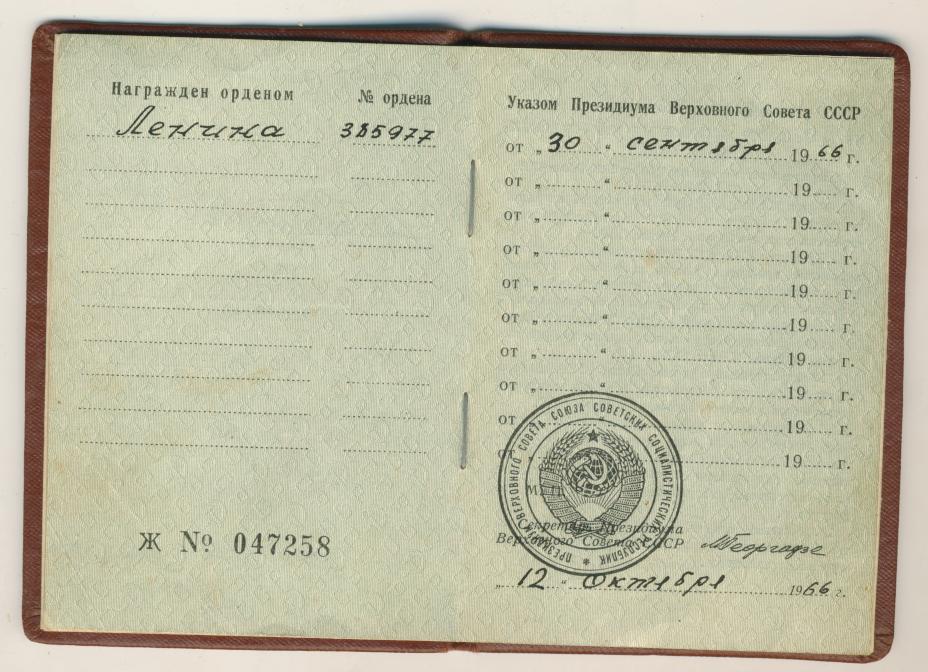 Награжден орденом
№ ордена
Ленина
385977
Ж № 047258
Указом Президиума Верховного Совета СССР
от „ 30 “ сентября 19 66 г.
от „ “ 19 г.
от „ “ 19 г.
от „ “ 19 г.
от „ “ 19 г.
от „ “ 19 г.
от „ “ 19 г.
от „ “ 19 г.
от „ “ 19 г.
от „ 19 г.
ПРЕЗИДИУМ ВЕРХОВНОГО СОВЕТА СОЮЗА СОВЕТСКИХ СОЦИАЛИСТИЧЕСКИХ РЕСПУБЛИК
М. П.
Секретарь Президиума
Верховного Совета СССР
МГеоргадзе
„ 12 “ Октября 1966 г.